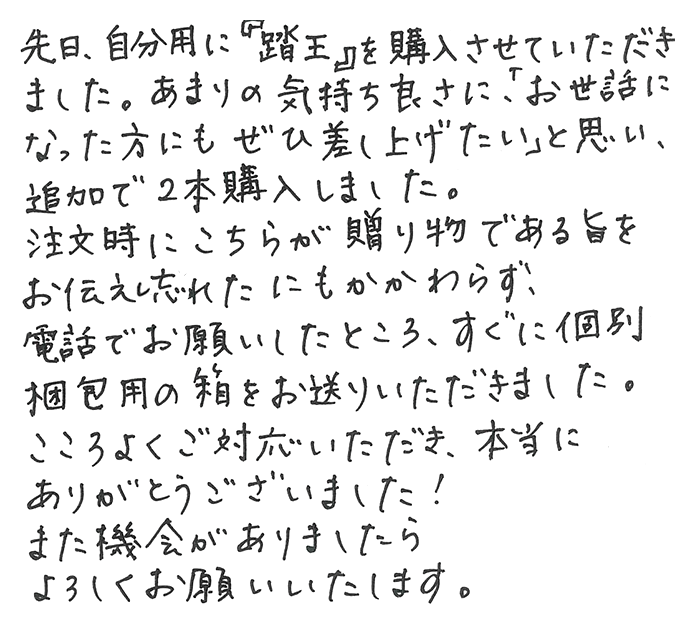 先日、自分用に『踏王』を購入させていただき
ました。あまりの気持ち良さに、「お世話に
なった方にもぜひ差し上げたい」と思い、
追加で2本購入しました。
注文時にこちらが贈り物である旨を
お伝えし忘れたにもかかわらず、
電話でお願いしたところ、すぐに個別
梱包用の箱をお送りいただきました。
こころよくご対応いただき、本当に
ありがとうございました!
また機会がありましたら
よろしくお願いいたします。